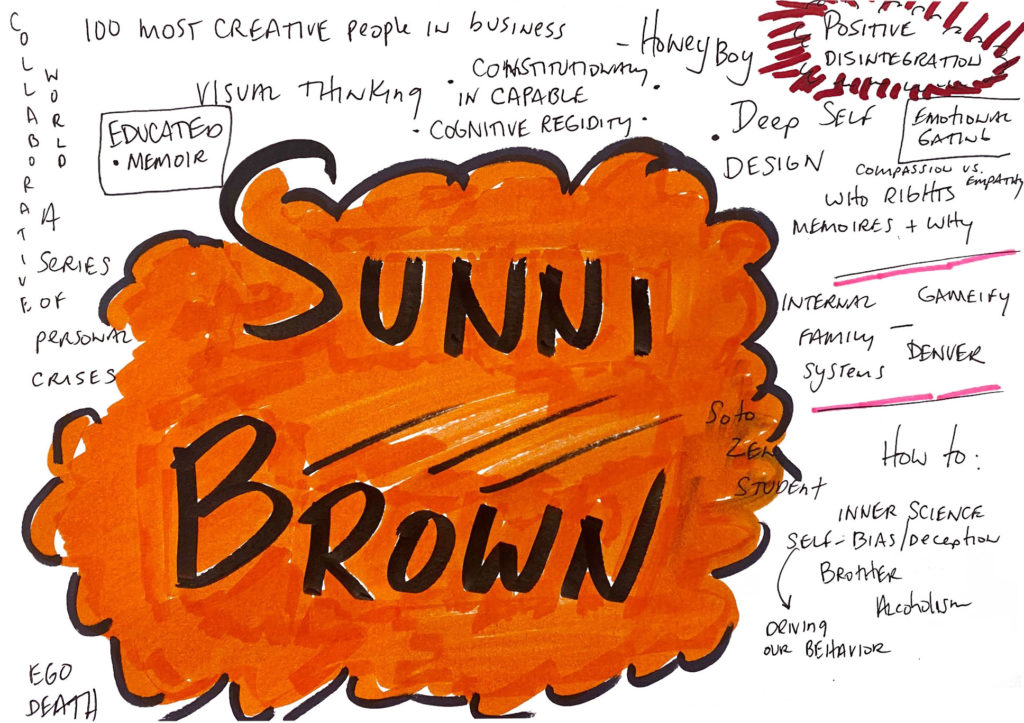 COLLABORATIVE
WORLD
100 MOST CREATIVE PEOPLE IN BUSINESS
- HONEY BOY
POSITIVE
DISINTEGRATION
VISUAL THINKING
• CONSTITUTIONALLY •
IN CAPABLE
• COGNITIVE REGIDITY •
EDUCATED
• MEMOIR
• DEEP SELF
DESIGN
EMOTIONAL
GATING
COMPASSION VS.
EMPATHY
WHO RIGHTS
MEMOIRES + WHY
A
SERIES
OF
PERSONAL
CRISES
SUNNI
BROWN
INTERNAL
FAMILY
SYSTEMS
GAMEIFY
–
DENVER
Soto
ZEN
STUDENT
HOW TO:
INNER SCIENCE
SELF-BIAS/DECEPTION
BROTHER
ALCOHOLISM
DRIVING
OUR BEHAVIOR
EGO
DEATH